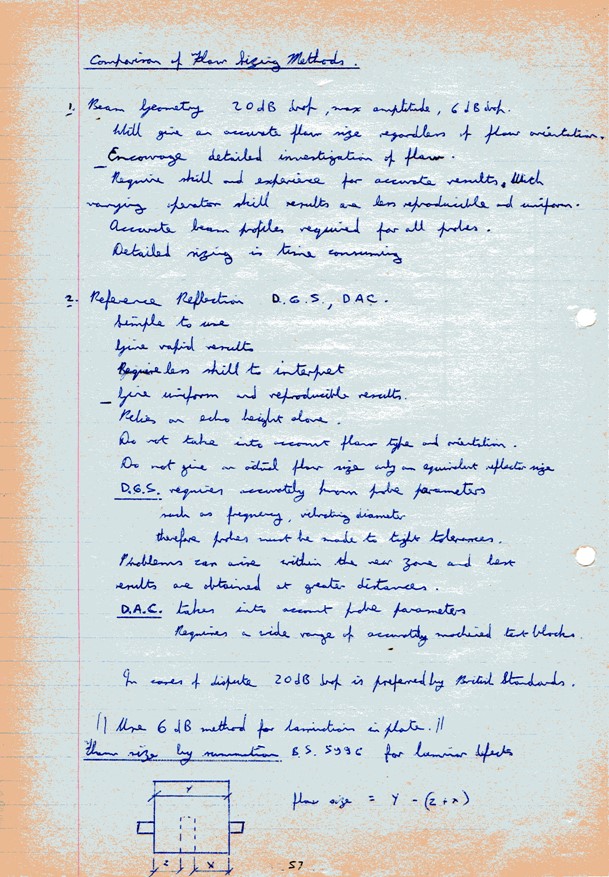 Comparison of Flaw Sizing Methods.
1. Beam Geometry 20dB drop, max amplitude, 6dB drop.
Will give an accurate flaw size regardless of flaw orientation.
Encourage detailed investigation of flaw.
Require skill and experience for accurate results. With
varying operator skill results are less reproducible and uniform.
Accurate beam profiles required for all probes.
Detailed sizing is time consuming
2. Reference Reflection D.G.S., DAC.
Simple to use
Give rapid results
Require less skill to interpret
Give uniform and reproducible results.
Relies on echo height alone.
Do not take into account flaw type and orientation.
Do not give an actual flaw size only an equivalent reflector size
D.G.S. requires accurately known probe parameters
such as frequency, vibrating diameter
therefore probes must be made to tight tolerances.
Problems can arise within the near zone and best
results are obtained at greater distances.
D.A.C. takes into account probe parameters
Requires a wide range of accurately machined test blocks.
In cases of dispute 20dB drop is preferred by British Standards.
|| Use 6 dB method for laminations in plate. ||
Flaw size by summation B.S. 5996 for laminar defects
Y
flaw size = Y - (z + x)
z x
57